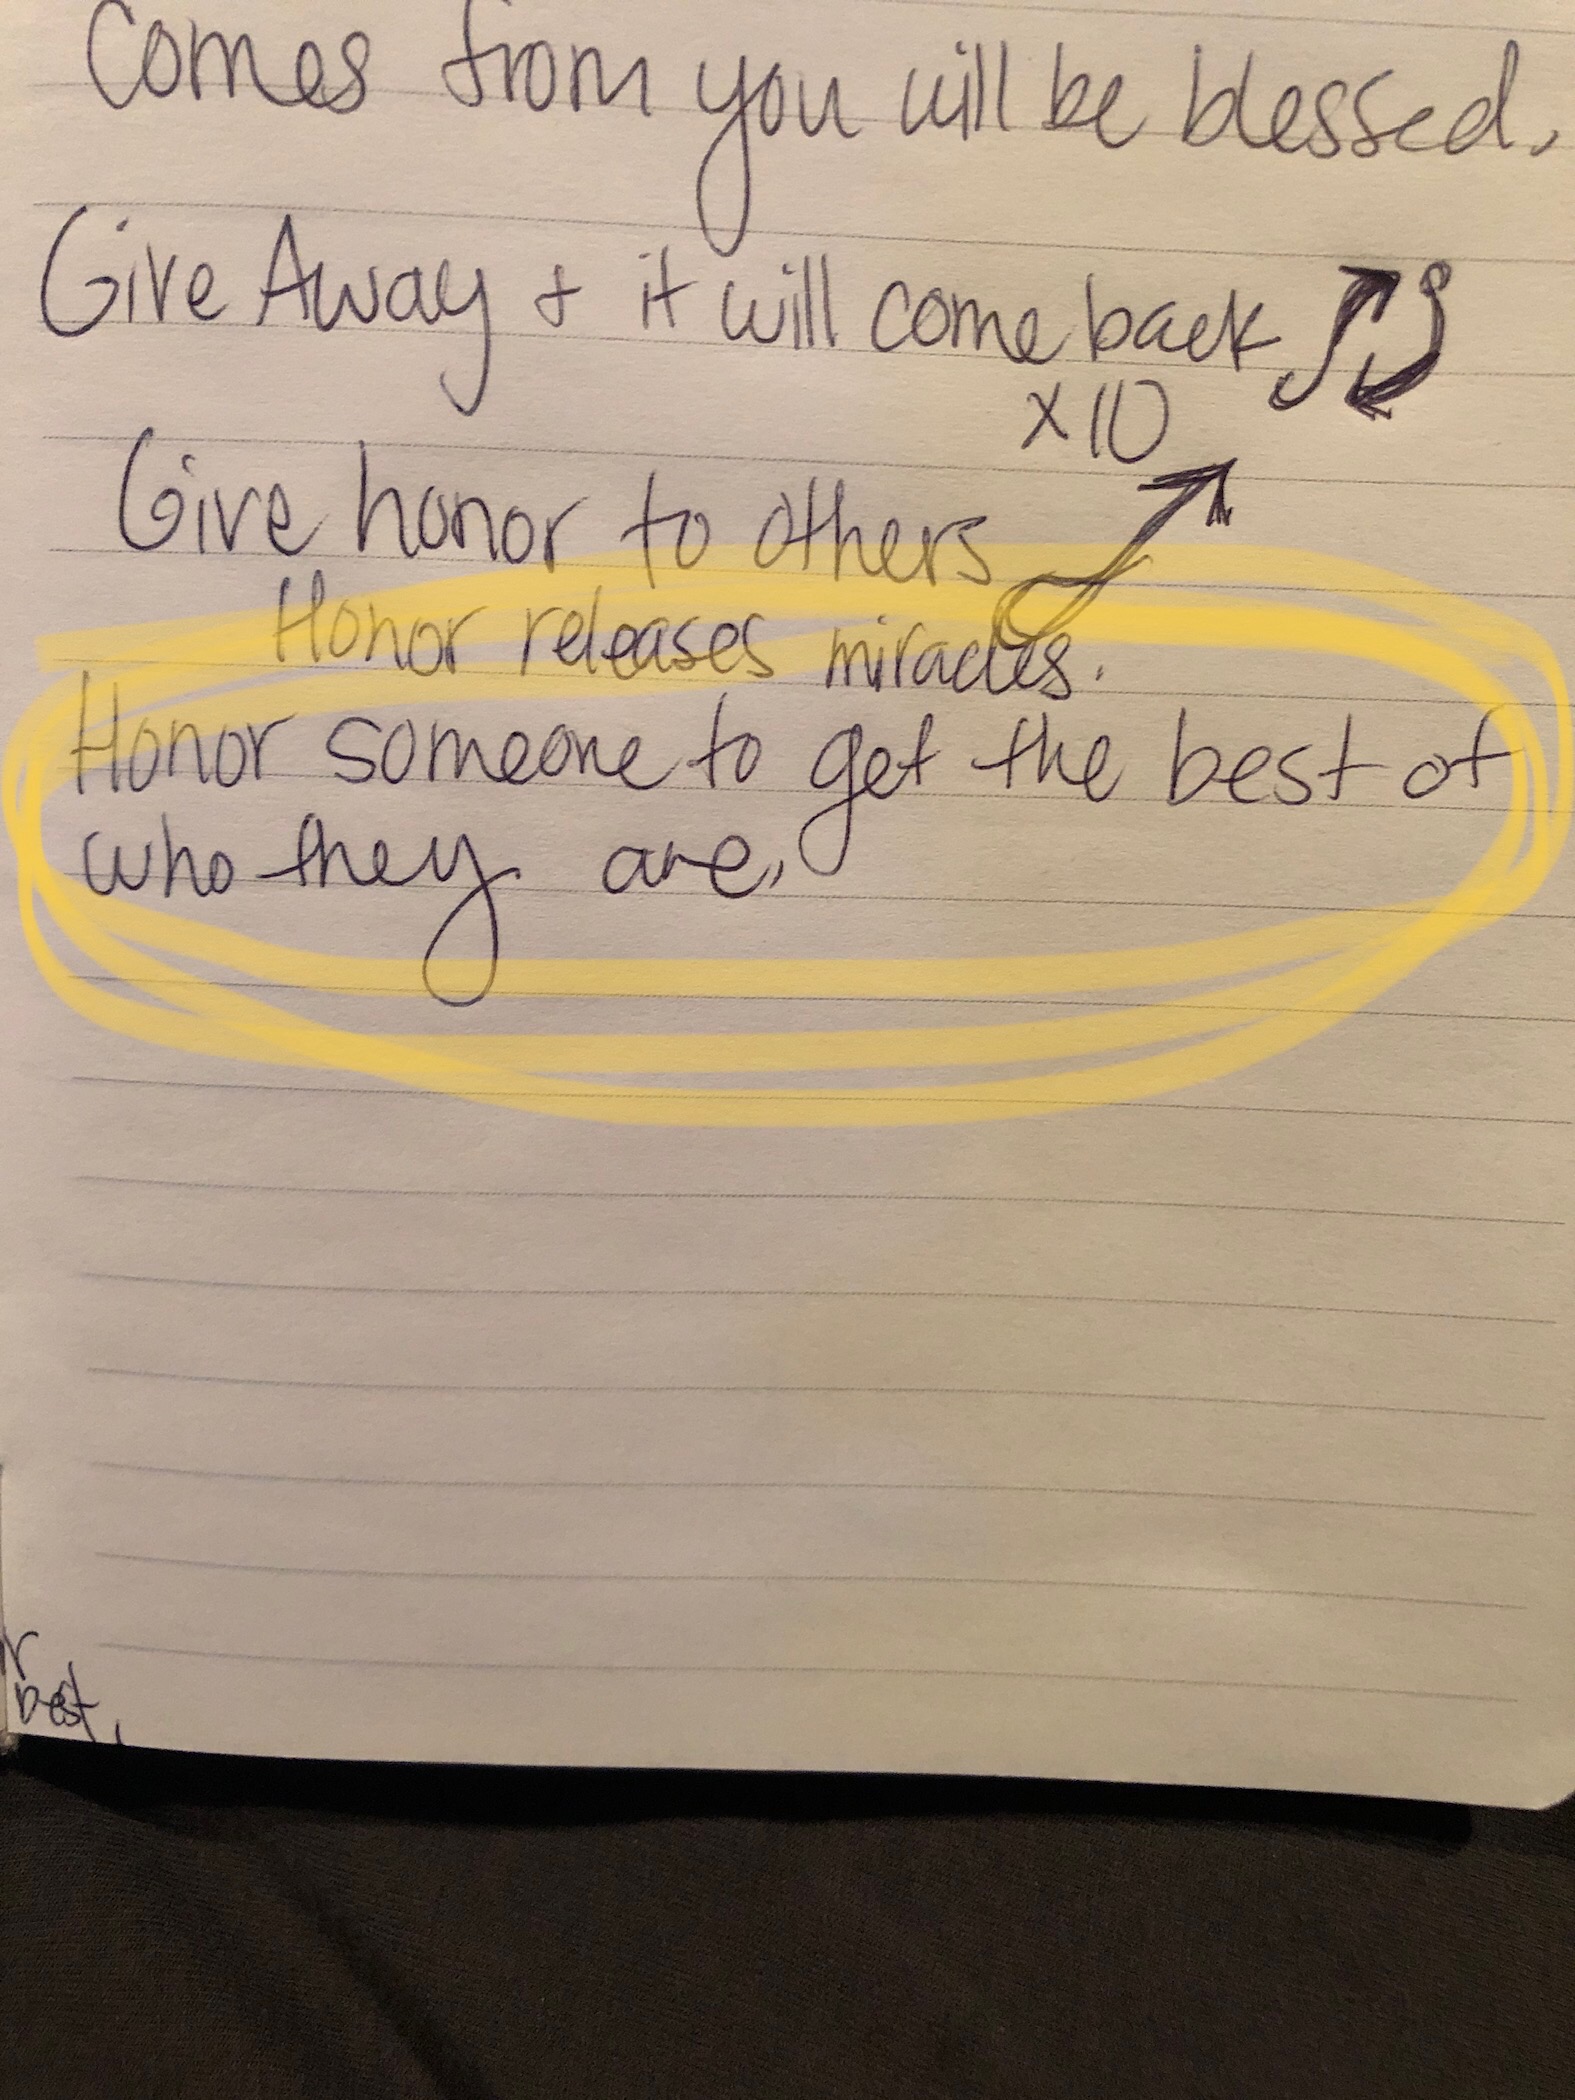 comes from you will be blessed.
Give Away + it will come back
x10
Give honor to others
Honor releases miracles.
Honor someone to get the best of
who they are.
r
best